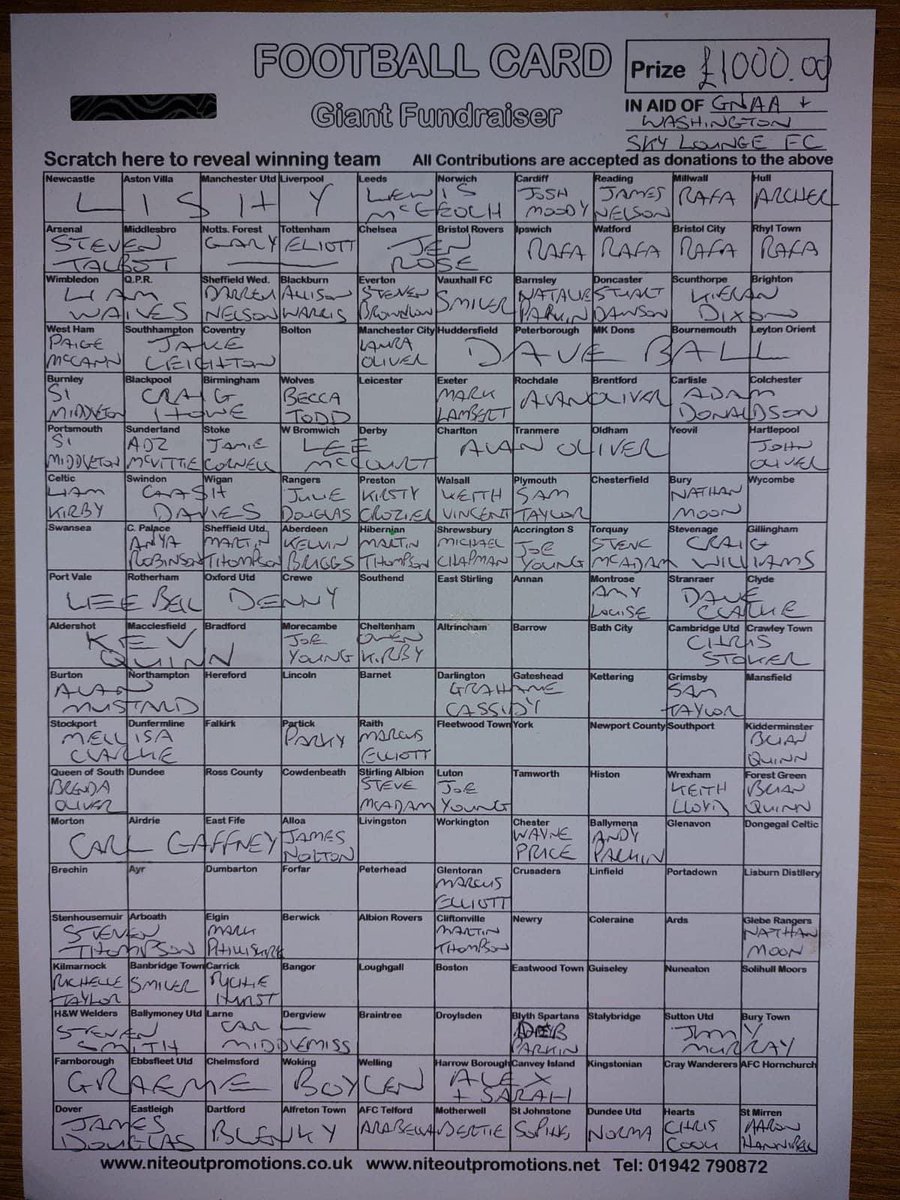 FOOTBALL CARD
Giant Fundraiser
Prize £1000.00
IN AID OF GNAA +
WASHINGTON
SKY LOUNGE FC
Scratch here to reveal winning team All Contributions are accepted as donations to the above
Newcastle Aston Villa Manchester Utd Liverpool Leeds Norwich Cardiff Reading Millwall Hull
L I S H Y LEWIS JOSH JAMES RAFA ARCHER
McGEOCH MOODY NELSON
Arsenal Middlesbro Notts. Forest Tottenham Chelsea Bristol Rovers Ipswich Watford Bristol City Rhyl Town
STEVEN GARY ELIOTT JEN RAFA RAFA RAFA RAFA
TALBOT ROSE
Wimbledon Q.P.R. Sheffield Wed. Blackburn Everton Vauxhall FC Barnsley Doncaster Scunthorpe Brighton
LIAM DARREN ALLISON STEVEN SMILER NATALIE STUART KIERAN
WAIVES NELSON HARRIS BROWNSON PARKIN DAWSON DIXON
West Ham Southhampton Coventry Bolton Manchester City Huddersfield Peterborough MK Dons Bournemouth Leyton Orient
PAIGE JAKE LAURA DAVE BALL
McCANN LEIGHTON OLIVER
Burnley Blackpool Birmingham Wolves Leicester Exeter Rochdale Brentford Carlisle Colchester
SI CRAIG BECCA MARK ALAN OLIVER ADAM
MIDDLETON HOWE TODD LAMBERT DONALDSON
Portsmouth Sunderland Stoke W Bromwich Derby Charlton Tranmere Oldham Yeovil Hartlepool
SI ADZ JAMIE LEE ALAN OLIVER JOHN
MIDDLETON McVITTIE CORNELL McCOURT OLIVER
Celtic Swindon Wigan Rangers Preston Walsall Plymouth Chesterfield Bury Wycombe
LIAM CAASH JULIE KIRSTY KEITH SAM NATHAN
KIRBY DAVIES DOUGLAS CROZIER VINCENT TAYLOR MOON
Swansea C. Palace Sheffield Utd. Aberdeen Hibernian Shrewsbury Accrington S Torquay Stevenage Gillingham
ANYA MARTIN KELVIN MARTIN MICHAEL JOE STEVE CRAIG
ROBINSON THOMPSON BRIGGS THOMPSON CHAPMAN YOUNG McADAM WILLIAMS
Port Vale Rotherham Oxford Utd Crewe Southend East Stirling Annan Montrose Stranraer Clyde
LEE BELL DENNY AMY DAVE
LOUISE CLARKE
Aldershot Macclesfield Bradford Morecambe Cheltenham Altrincham Barrow Bath City Cambridge Utd Crawley Town
KEV JOE OWEN CHRIS
QUINN YOUNG KIRBY STOKER
Burton Northampton Hereford Lincoln Barnet Darlington Gateshead Kettering Grimsby Mansfield
ALAN GRAHAME SAM
MUSTARD CASSIDY TAYLOR
Stockport Dunfermline Falkirk Partick Raith Fleetwood Town York Newport County Southport Kidderminster
MELLISA PARKY MARCUS BRIAN
CLARKE ELLIOTT QUINN
Queen of South Dundee Ross County Cowdenbeath Stirling Albion Luton Tamworth Histon Wrexham Forest Green
BRENDA STEVE JOE KEITH BRIAN
OLIVER McADAM YOUNG LLOYD QUINN
Morton Airdrie East Fife Alloa Livingston Workington Chester Ballymena Glenavon Dongegal Celtic
CARL GAFFNEY JAMES WAYNE ANDY
NOLTON PRICE PARKIN
Brechin Ayr Dumbarton Forfar Peterhead Glentoran Crusaders Linfield Portadown Lisburn Distillery
MARCUS
ELLIOTT
Stenhousemuir Arboath Elgin Berwick Albion Rovers Cliftonville Newry Coleraine Ards Glebe Rangers
STEVEN MARK MARTIN NATHAN
THOMPSON THOMPSON MOON
Kilmarnock Banbridge Town Carrick Bangor Loughgall Boston Eastwood Town Guiseley Nuneaton Solihull Moors
RICHELLE SMILER RICHIE
TAYLOR HURST
H&W Welders Ballymoney Utd Larne Dergview Braintree Droylsden Blyth Spartans Stalybridge Sutton Utd Bury Town
STEVEN CARL JIMMY
SMITH MIDDLEMISS PARKIN MURRAY
Farnborough Ebbsfleet Utd Chelmsford Woking Welling Harrow Borough Canvey Island Kingstonian Cray Wanderers AFC Hornchurch
GRAEME BOYLEN ALEX
+ SARAH
Dover Eastleigh Dartford Alfreton Town AFC Telford Motherwell St Johnstone Dundee Utd Hearts St Mirren
JAMES BLENKY ARABELLA BERTIE NORMA CHRIS AARON
DOUGLAS COOK
www.niteoutpromotions.co.uk www.niteoutpromotions.net Tel: 01942 790872